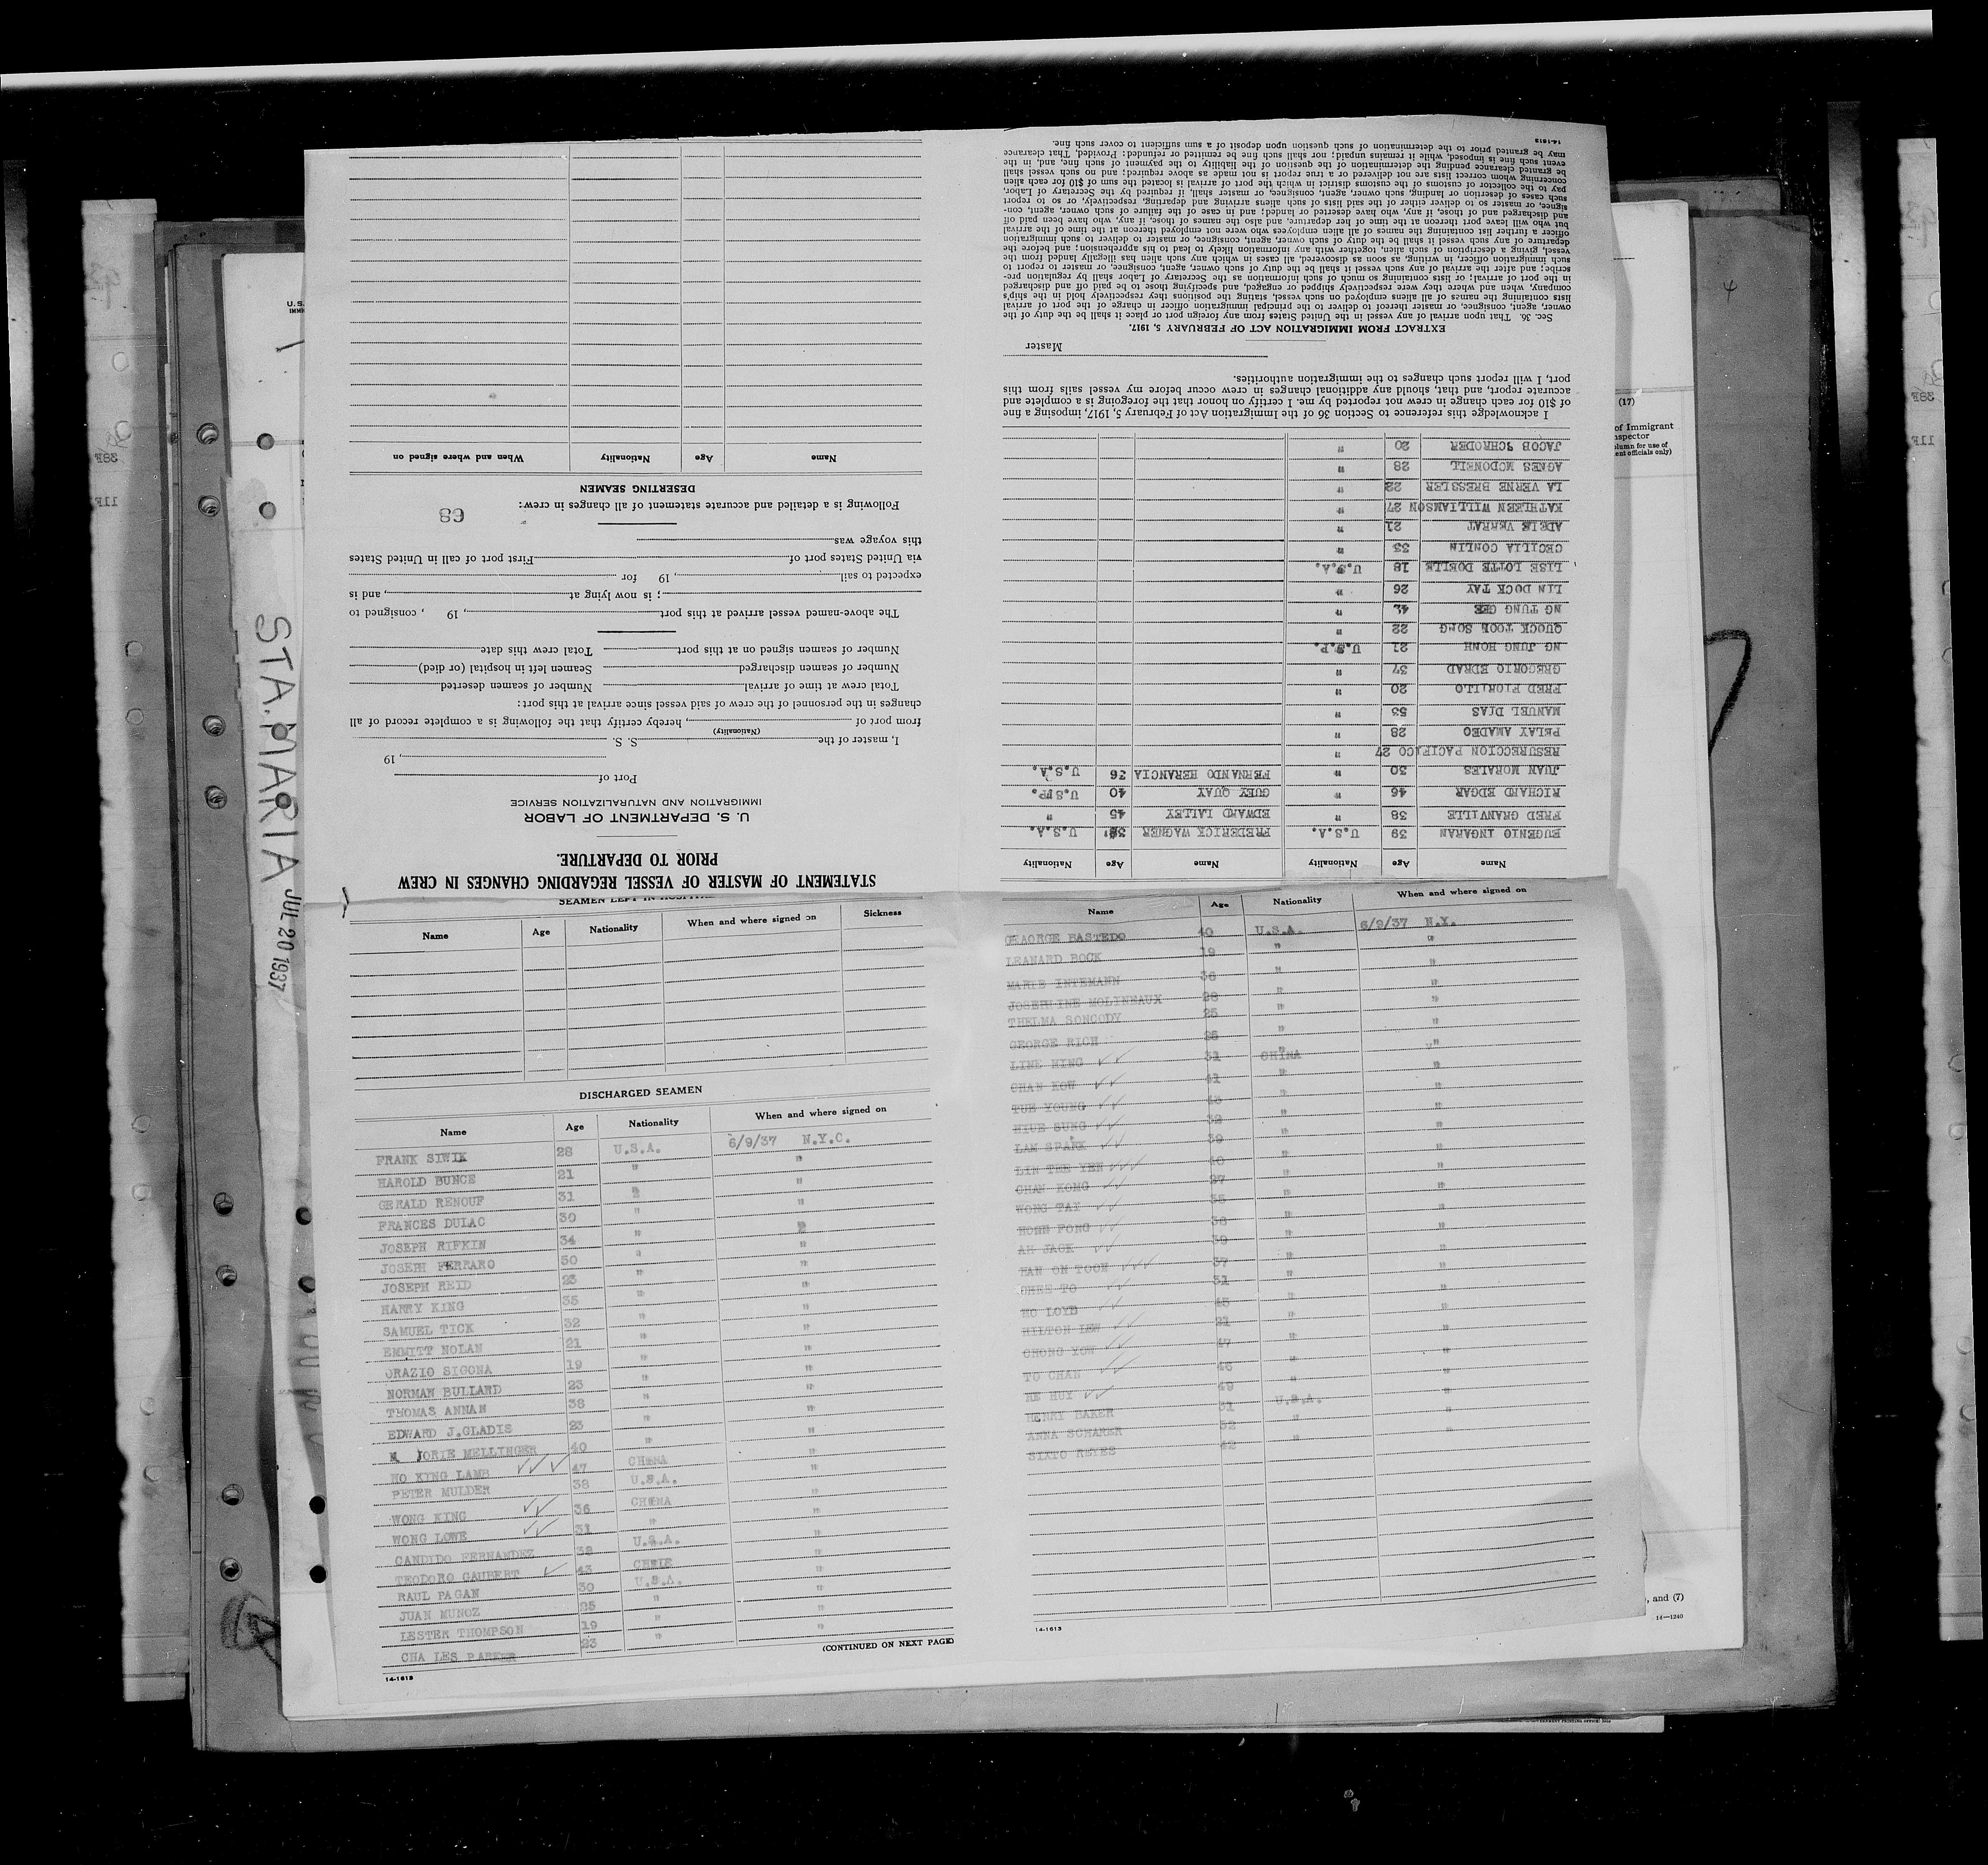 STATEMENT OF MASTER OF VESSEL REGARDING CHANGES IN CREW
PRIOR TO DEPARTURE.
U. S. DEPARTMENT OF LABOR
IMMIGRATION AND NATURALIZATION SERVICE
Port of
, 19
I, master of the S. S.
(Nationality)
from port of , hereby certify that the following is a complete record of all
changes in the personnel of the crew of said vessel since arrival at this port:
Total crew at time of arrival Number of seamen deserted
Number of seamen discharged Seamen left in hospital (or died)
Number of seamen signed on at this port Total crew this date
The above-named vessel arrived at this port , 19 , consigned to
; is now lying at , and is
expected to sail , 19 for
via United States port of First port of call in United States
this voyage was
Following is a detailed and accurate statement of all changes in crew:
68
DESERTING SEAMEN
Name Age Nationality When and where signed on
Name Age Nationality Name Age Nationality
EUGENIO INGARAN 39 U.S.A. FREDERICK WAGNER U.S.A.
FRED GRANVILLE 38 " EDWARD LALLEY 45 "
RICHARD EDGAR 46 " GUEY QUAY 40
JUAN MORALES 30 " FERNANDO HERANCIA 36 U.S.A.
RESURECCION PACIFICO 27 "
PELAY AMADEO 28 "
MANUEL DIAS 53 "
FRED FIORILLO 20 "
GREGORIO EDRAD 37 "
NG JUNG HONH 21
QUOCK TOON SONG 22 "
NG TUNG GEE 42 "
LIN DOCK TAY 26 "
LISE LOTTE DOELLE 18 U.S.A.
CECILIA CONLIN 33 "
ADELE VERRAT 21 "
KATHLEEN WILLIAMSON 27 "
LA VERNE BRESSLER 22 "
AGNES MCDONELL 28 "
JACOB SCHRODER 20 "
I acknowledge this reference to Section 36 of the Immigration Act of February 5, 1917, imposing a fine
of $10 for each change in crew not reported by me. I certify on honor that the foregoing is a complete and
accurate report, and that, should any additional changes in crew occur before my vessel sails from this
port, I will report such changes to the immigration authorities.
Master
EXTRACT FROM IMMIGRATION ACT OF FEBRUARY 5, 1917.
Sec. 36. That upon arrival of any vessel in the United States from any foreign port or place it shall be the duty of the
owner, agent, consignee, or master thereof to deliver to the principal immigration officer in charge of the port of arrival
lists containing the names of all aliens employed on such vessel, stating the positions they respectively hold in the ship's
company, when and where they were respectively shipped or engaged, and specifying those to be paid off and discharged
in the port of arrival; or lists containing so much of such information as the Secretary of Labor shall by regulation pre-
scribe; and after the arrival of any such vessel it shall be the duty of such owner, agent, consignee, or master to report to
such immigration officer, in writing, as soon as discovered, all cases in which any such alien has illegally landed from the
vessel, giving a description of such alien, together with any information likely to lead to his apprehension; and before the
departure of any such vessel it shall be the duty of such owner, agent, consignee, or master to deliver to such immigration
officer a further list containing the names of all alien employees who were not employed thereon at the time of the arrival
but who will leave port thereon at the time of her departure, and also the names of those, if any, who have been paid off
and discharged and of those, if any, who have deserted or landed; and in case of the failure of such owner, agent, con-
signee, or master so to deliver either of the said lists of such aliens arriving and departing, respectively, or so to report
such cases of desertion or landing, such owner, agent, consignee, or master shall, if required by the Secretary of Labor,
pay to the collector of customs of the customs district in which the port of arrival is located the sum of $10 for each alien
concerning whom correct lists are not delivered or a true report is not made as above required; and no such vessel shall
be granted clearance pending the determination of the question of the liability to the payment of such fine, and, in the
event such fine is imposed, while it remains unpaid; nor shall such fine be remitted or refunded: Provided, That clearance
may be granted prior to the determination of such question upon deposit of a sum sufficient to cover such fine.
14-1613
STA. MARIA JUL 20 1937
Name Age Nationality When and where signed on Sickness
DISCHARGED SEAMEN
Name Age Nationality When and where signed on
FRANK SIWIK 28 U.S.A. 6/9/37 N.Y.C.
HAROLD BUNCE 21 " "
GERALD RENOUF 31 " "
FRANCES DULAC 30 " "
JOSEPH RIFKIN 34 " "
JOSEPH FERRARO 50 " "
JOSEPH REID 23 " "
HARRY KING 35 " "
SAMUEL TICK 32 " "
EMMITT NOLAN 21 " "
ORAZIO SIGONA 19 " "
NORMAN BULLARD 23 " "
THOMAS ANNAN 38 " "
EDWARD J.GLADIS 23 " "
M JORIE MELLINGER 40 " "
HO KING LAMB 47 CHINA "
PETER MULDER 38 U.S.A. "
WONG KING 36 CHINA "
WONG LOWE 31 " "
CANDIDO FERNANDEZ 39 U.S.A. "
TEODORO GAUBERT 43 CHILE "
RAUL PAGAN 30 U.S.A. "
JUAN MUNOZ 25 " "
LESTER THOMPSON 19 " "
CHA LES PARKER 23 " "
(CONTINUED ON NEXT PAGE)
14-1613
Name Age Nationality When and where signed on
GEAORGE BASTEDO 40 U.S.A. 6/9/37 N.Y.
LEANARD BOCK 19 " "
MARIE INTEMANN 36 " "
JOSEPHINE MOLINEAUX 28 " "
THELMA SONCODY 25 " "
GEORGE RICH " "
LIME HING 31 CHINA "
CHAN KOW 41 " "
TUE YOUNG 43 " "
HIUE SUNG 32 " "
LAM SPARK 39 " "
LIN TEE YEN 40 " "
CHAN KONG 27 " "
WONG TAY " "
FONG 36 " "
AH JACK " "
HAN ON TOON 37 " "
CHEE TO 31 " "
HO LOYD " "
HILTON LEW 21 " "
CHONG YOW 47 " "
TO CHAN " "
HUY 49 " "
HENRY BAKER 31 U.S.A. "
ANNA SCHARER 52 " "
SIXTO REYES 42 " "
14-1613
(17)
of Immigrant
nspector
olumn for use of
ent officials only)
, and (7)
14—1240